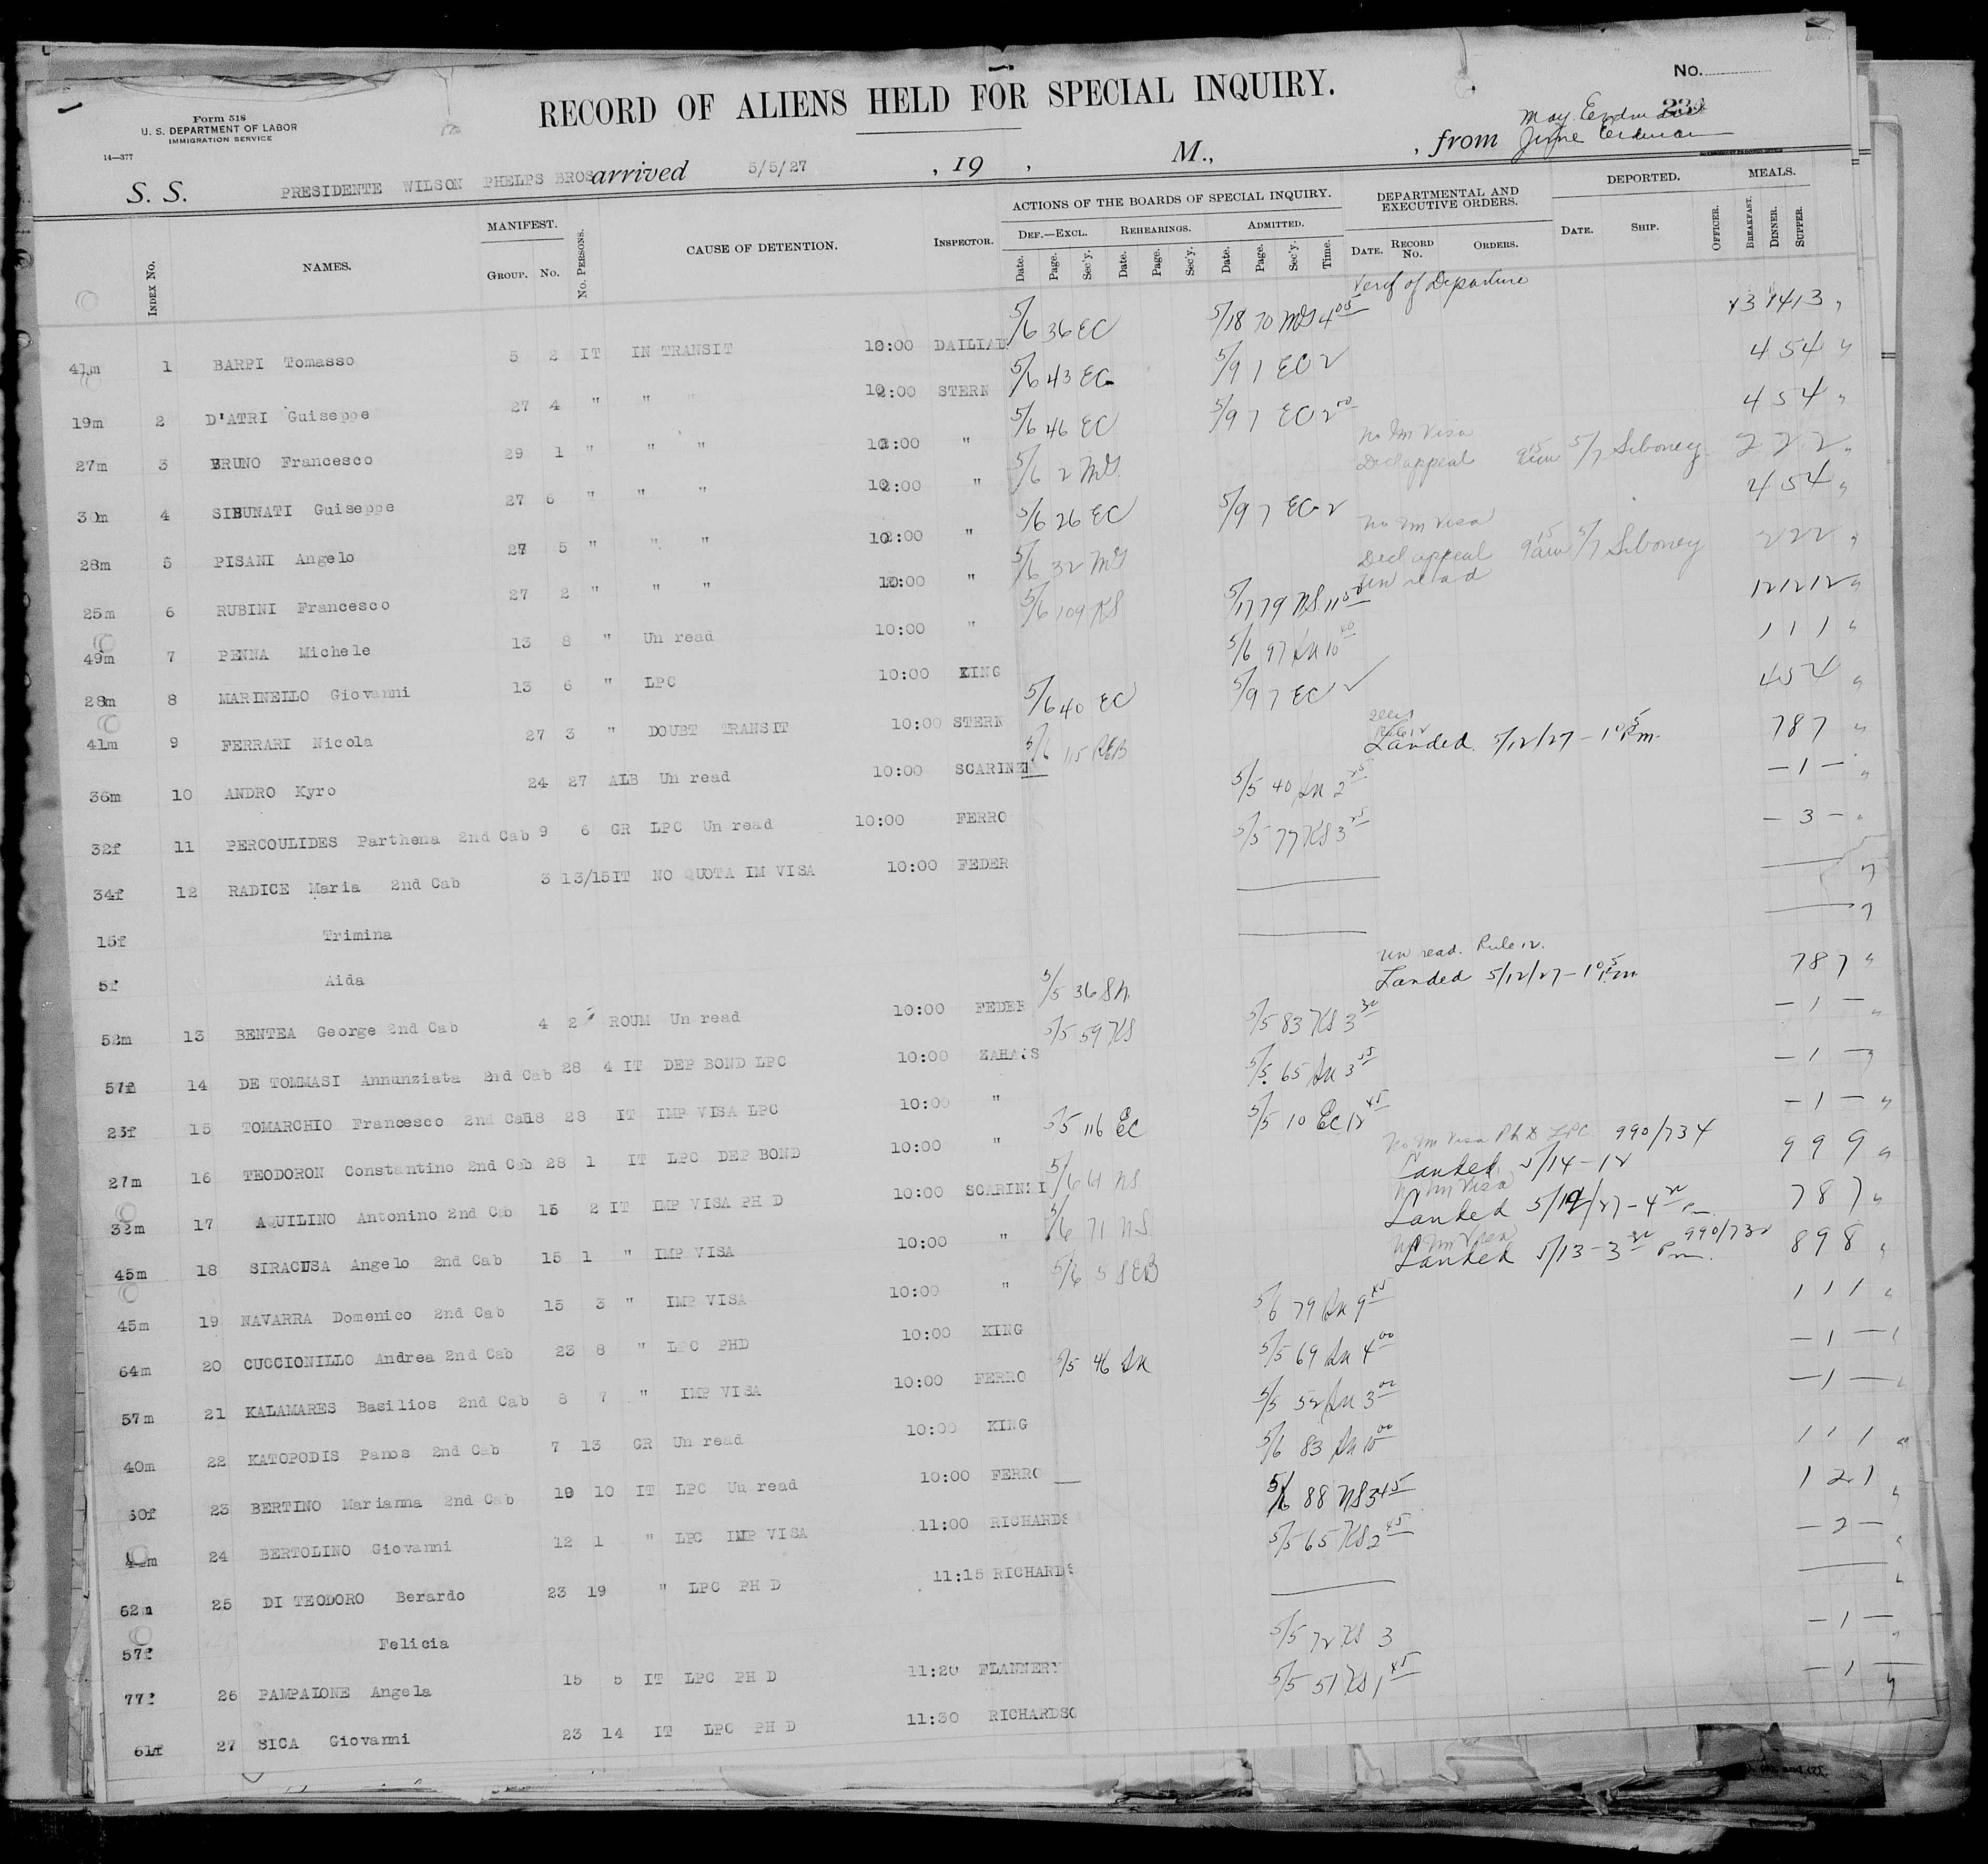 No.
RECORD OF ALIENS HELD FOR SPECIAL INQUIRY.
Form 518
U. S. DEPARTMENT OF LABOR
IMMIGRATION SERVICE
14—377
S. S. PRESIDENTE WILSON PHELPS BROS arrived 5/5/27 , 19 , M., , from
ACTIONS OF THE BOARDS OF SPECIAL INQUIRY. DEPARTMENTAL AND EXECUTIVE ORDERS. DEPORTED. MEALS.
INDEX No. NAMES. MANIFEST. GROUP. No. No. PERSONS. CAUSE OF DETENTION. INSPECTOR. DEF.—EXCL. REHEARINGS. ADMITTED.
Date. Page. Sec'y. Date. Page. Sec'y. Date. Page. Sec'y. Time. DATE. RECORD No. ORDERS. DATE. SHIP. OFFICER. BREAKFAST. DINNER. SUPPER.
Verif of Departure
41m 1 BARPI Tomasso 5 2 IT IN TRANSIT DAILIAD 5/6 36 EC 5/18 70 MS 4 05
19m 2 D'ATRI Guiseppe 27 4 " " " STERN 5/6 43 EC 5/9 7 EC 2 4 5 4 "
27m 3 BRUNO Francesco 29 1 " " " " 5/6 46 EC 5/9 7 EC 2 00 4 5 4 "
No Im Visa
30m 4 SIBUNATI Guiseppe 27 6 " " " " 5/6 2 MS Decl appeal 5/7 Siboney 2 2 2 "
28m 5 PISANI Angelo 27 5 " " " " 5/6 26 EC 5/9 7 EC 2 4 5 4 "
No Im Visa
25m 6 RUBINI Francesco 27 2 " " " 10:00 " 5/6 32 MS Decl appeal 5/7 Siboney 2 2 2 "
Un read
49m 7 PENNA Michele 13 8 " Un read 10:00 " 5/6 109 KS 5/17 79 NS 11 50 12 12 12 "
28m 8 MARINELLO Giovanni 13 6 " LPC 10:00 KING 5/6 97 SN 10 40 1 1 1 "
41m 9 FERRARI Nicola 27 3 " DOUBT TRANSIT 10:00 STERN 5/6 40 EC 5/9 7 EC 2 4 5 4 "
36m 10 ANDRO Kyro 24 27 ALB Un read 10:00 SCARINZI 5/6 115 REB Landed 5/12/27 – 1 05 Pm. 7 8 7 "
32f 11 PERCOULIDES Parthena 2nd Cab 9 6 GR LPC Un read 10:00 FERRO 5/5 40 SN 2 45 — 1 — "
34f 12 RADICE Maria 2nd Cab 3 13/15 IT NO QUOTA IM VISA 10:00 FEDER 5/5 77 KS 3 25 — 3 — "
15f Trimina
5f Aida
Un read. Rule 12.
52m 13 BENTEA George 2nd Cab 4 2 ROUM Un read 10:00 FEDER 5/5 36 SN Landed 5/12/27 – 1 05 Pm. 7 8 7 "
57f 14 DE TOMMASI Annunziata 2nd Cab 28 4 IT DEP BOND LPC 10:00 5/5 59 KS 5/5 83 KS 3 30 — 1 — "
23f 15 TOMARCHIO Francesco 2nd Cab 28 IT IMP VISA LPC 10:00 " 5/5 65 SN 3 55 — 1 —
27m 16 TEODORON Constantino 2nd Cab 28 1 IT LPC DEP BOND 10:00 " 5/5 116 EC 5/5 10 EC 12 45 — 1 — "
No Im Visa Ph D LPC 990/734
32m 17 AQUILINO Antonino 2nd Cab 15 2 IT IMP VISA PH D 10:00 SCARINZI 5/6 61 NS Landed 5/14 – 12 9 9 9 "
No Im Visa
45m 18 SIRACUSA Angelo 2nd Cab 15 1 " IMP VISA 10:00 " 5/6 71 NS Landed 5/12/27 – 4 30 Pm 7 8 7 "
No Im Visa 990/732
45m 19 NAVARRA Domenico 2nd Cab 15 3 " IMP VISA 10:00 " 5/6 5 SEB Landed 5/13 – 3 30 Pm. 8 9 8 "
64m 20 CUCCIONILLO Andrea 2nd Cab 23 8 " LPC PHD 10:00 KING 5/6 79 SN 9 45 1 1 1 "
57m 21 KALAMARES Basilios 2nd Cab 8 7 " IMP VISA 10:00 FERRO 5/5 46 SN 5/5 69 SN 4 00 — 1 —
40m 22 KATOPODIS Panos 2nd Cab 7 13 GR Un read 10:00 KING 5/5 52 SN 3 00 — 1 —
23 BERTINO Marianna 2nd Cab 19 10 IT LPC Un read 10:00 FERRO 5/6 83 SN 10 00 1 1 1 "
24 BERTOLINO Giovanni 12 1 " LPC IMP VISA 11:00 RICHARDS 5/6 88 NS 3 45 1 2 1 "
62m 25 DI TEODORO Berardo 23 19 " LPC PH D 11:15 RICHARDS 5/5 65 KS 2 45 — 2 — "
57f Felicia
77f 26 PAMPALONE Angela 15 5 IT LPC PH D 11:20 FLANNERY 5/5 72 KS 3 — 1 — "
61f 27 SICA Giovanni 23 14 IT LPC PH D 11:30 RICHARDSO 5/5 51 KS 1 45 — 1 — "